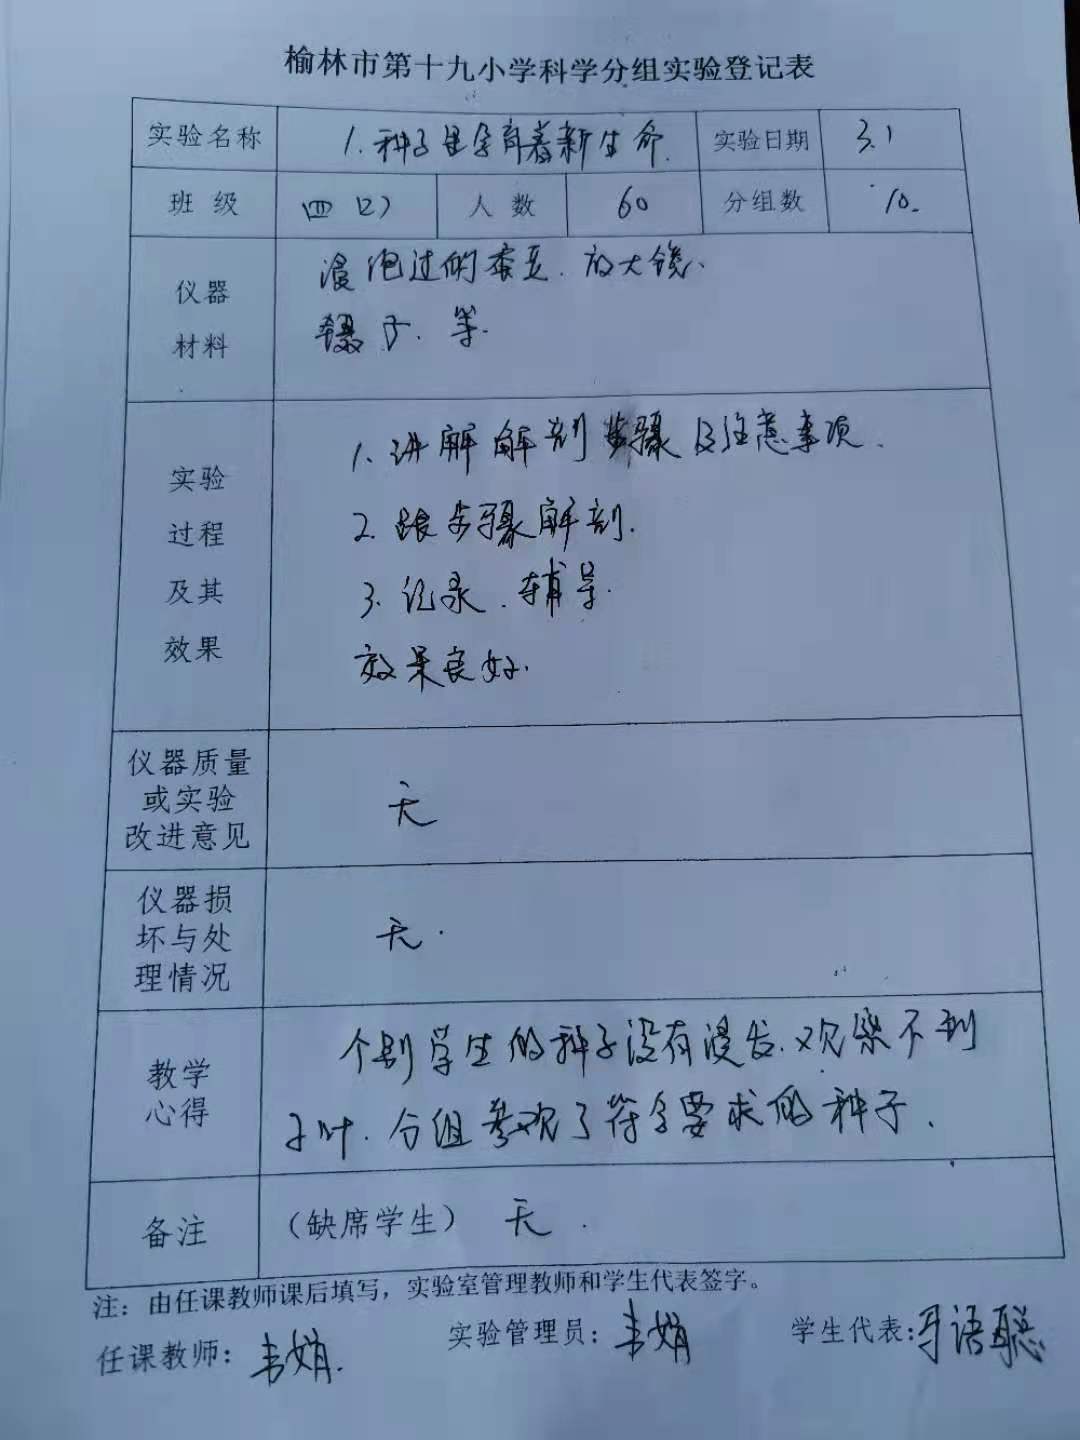 榆林市第十九小学科学分组实验登记表
实验名称 1.种子里孕育着新生命. 实验日期 3.1
班 级 四 人 数 60 分组数 10.
仪器材料 浸泡过的蚕豆.放大镜、
镊子.等.
实验过程及其效果 1.讲解解剖步骤及注意事项.
2.跟步骤解剖.
3.记录.辅导.
效果良好.
仪器质量
或实验
改进意见 无
仪器损
坏与处
理情况 无.
教学心得 个别学生的种子没有浸发.观察不到
子叶.分组参观了符合要求的种子.
备注 (缺席学生) 无.
注：由任课教师课后填写，实验室管理教师和学生代表签字。
任课教师: 韦娟. 实验管理员: 韦娟 学生代表: 语聪